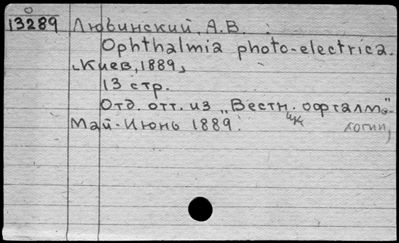 13289 Любинский, А.В.
Ophthalmia photo-electrica.
Киев, 1889,
13 стр.
Отд. отт. из „Вестн. офталмо-
Май-Июнь 1889. логии,